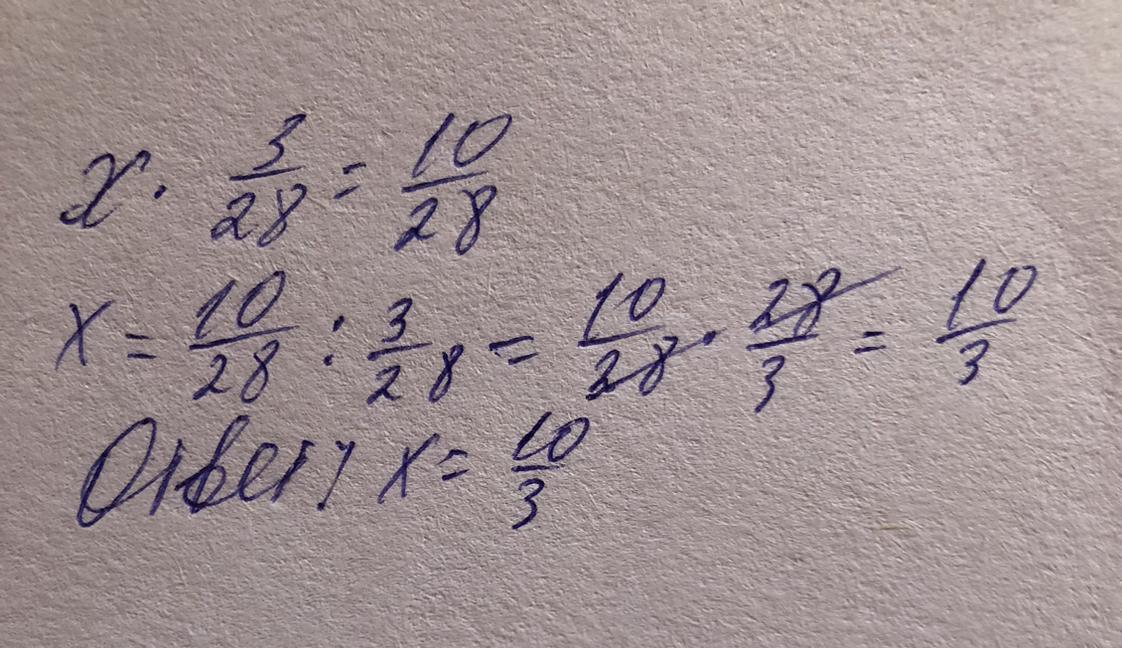 x · 3/28 = 10/28
x = 10/28 : 3/28 = 10/28 · 28/3 = 10/3
Ответ: x = 10/3